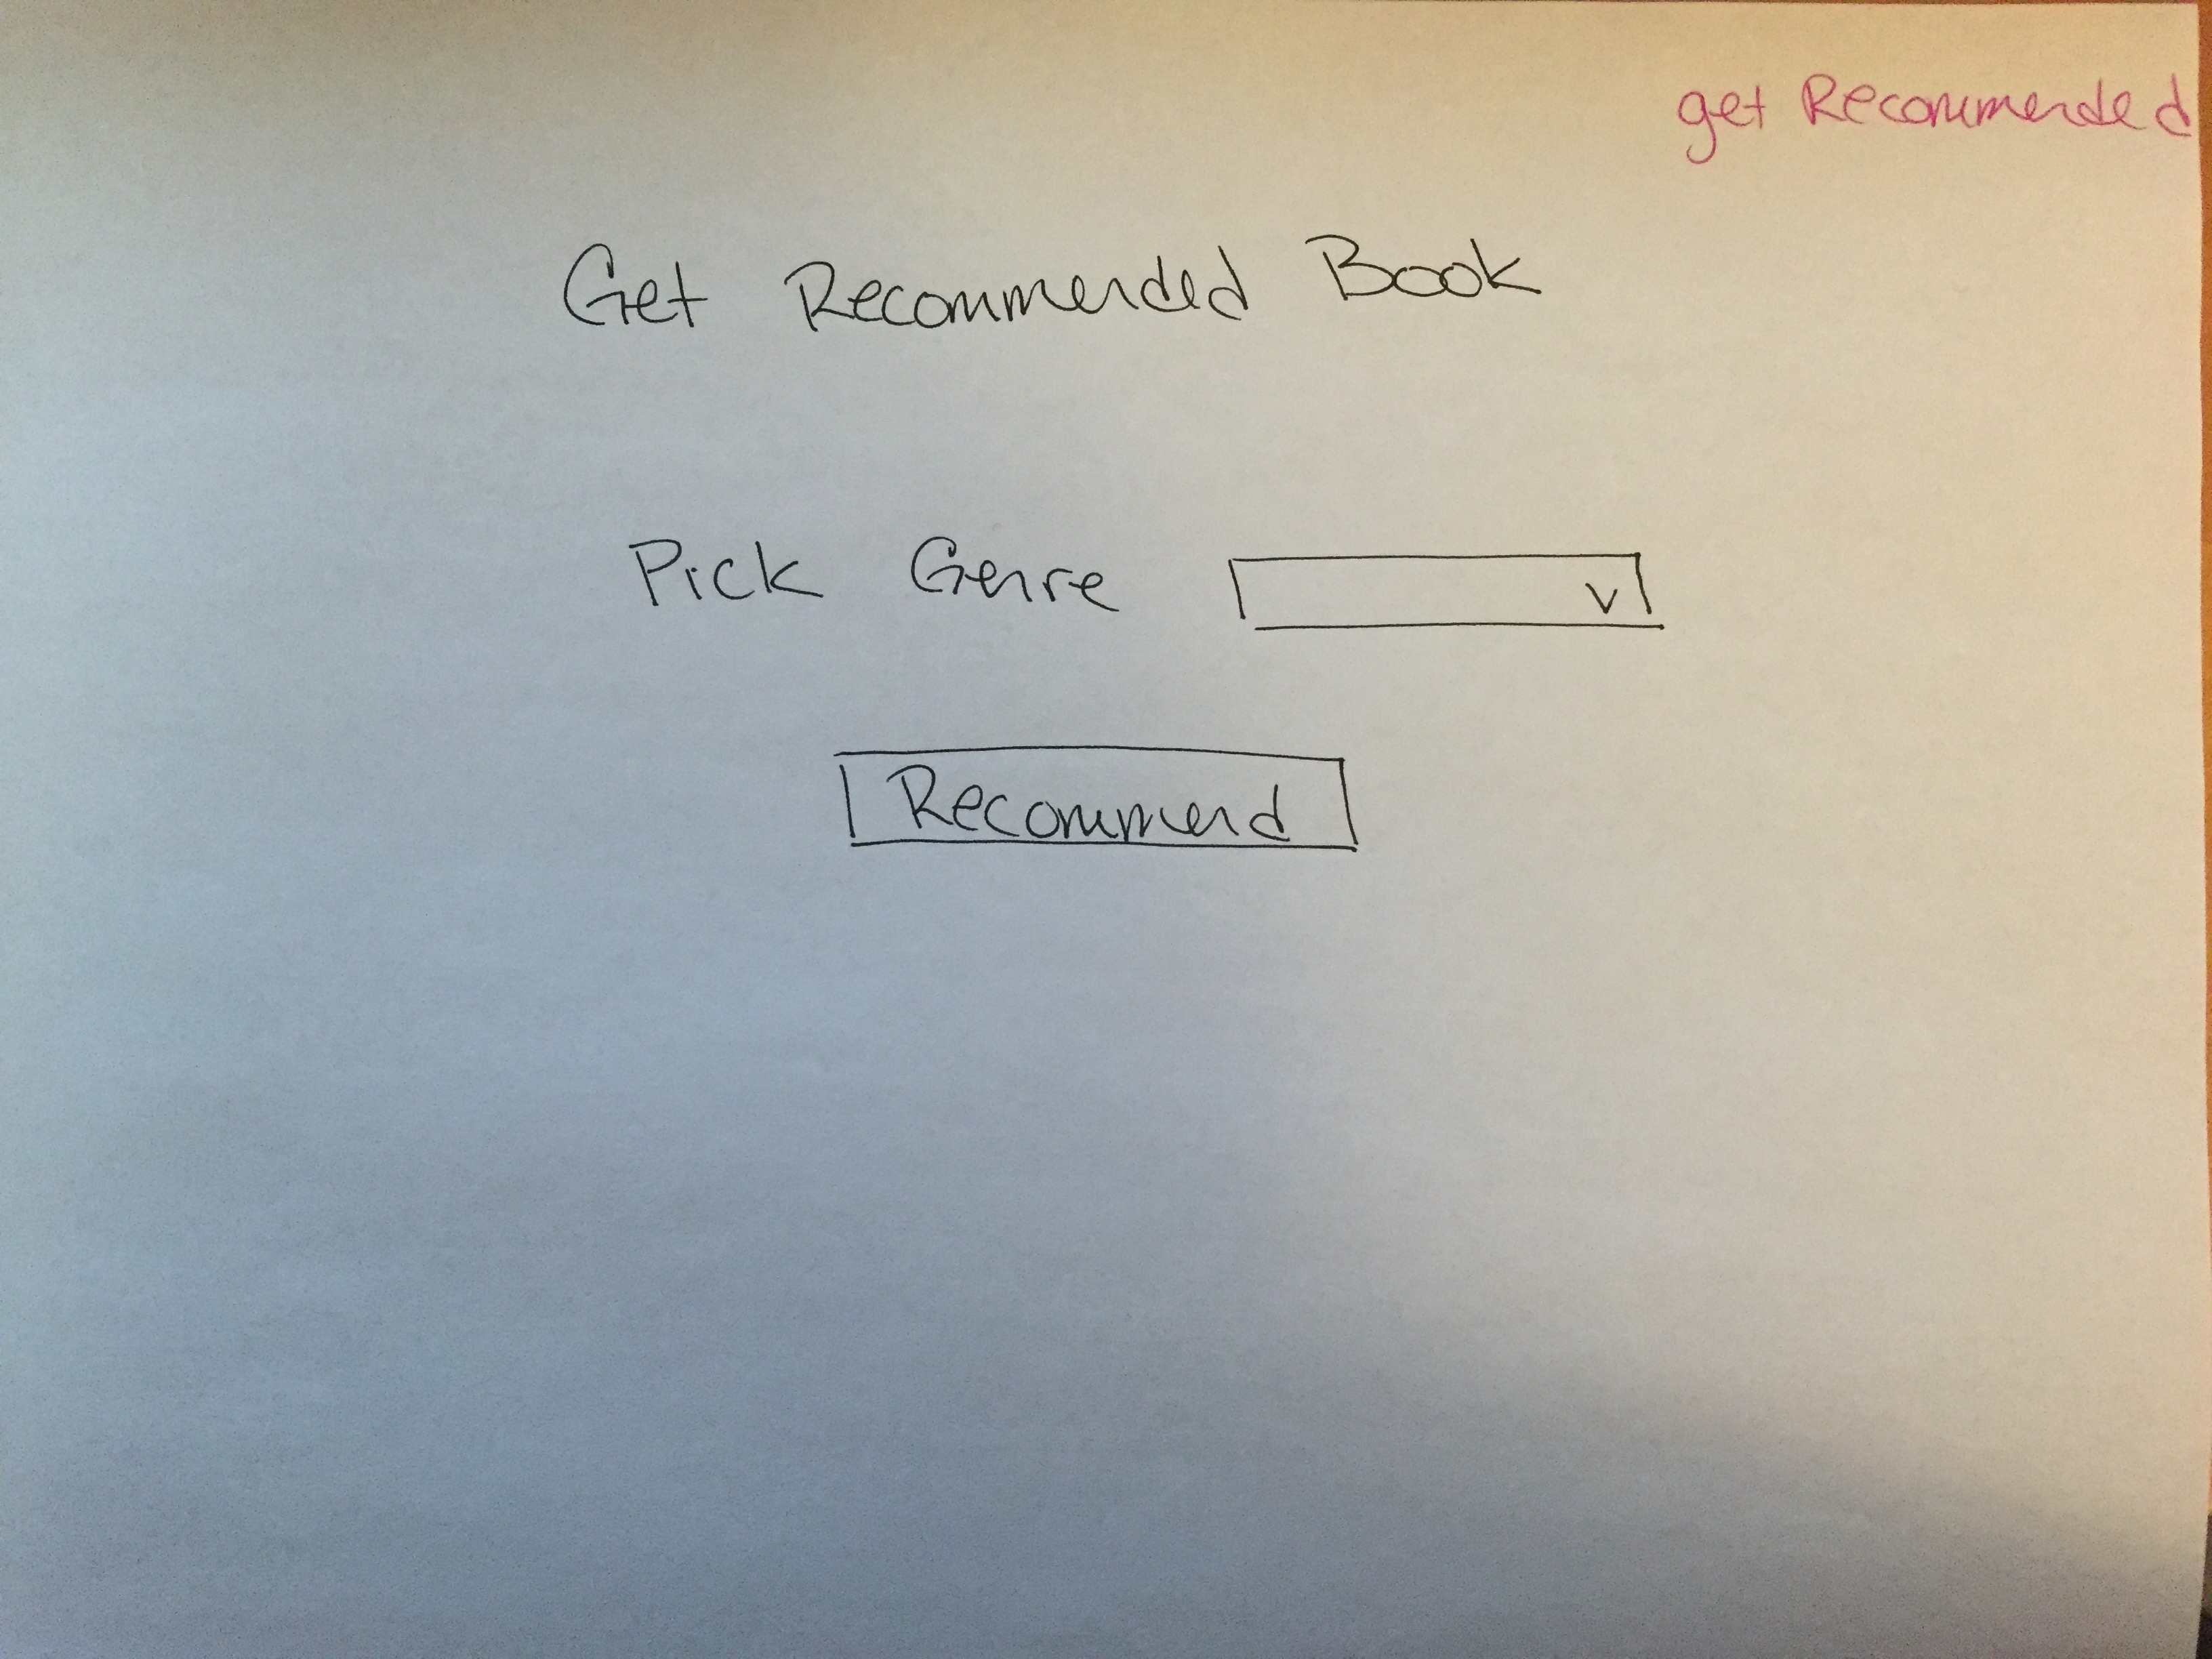 get Recommended
Get Recommended Book
Pick Genre v
Recommend